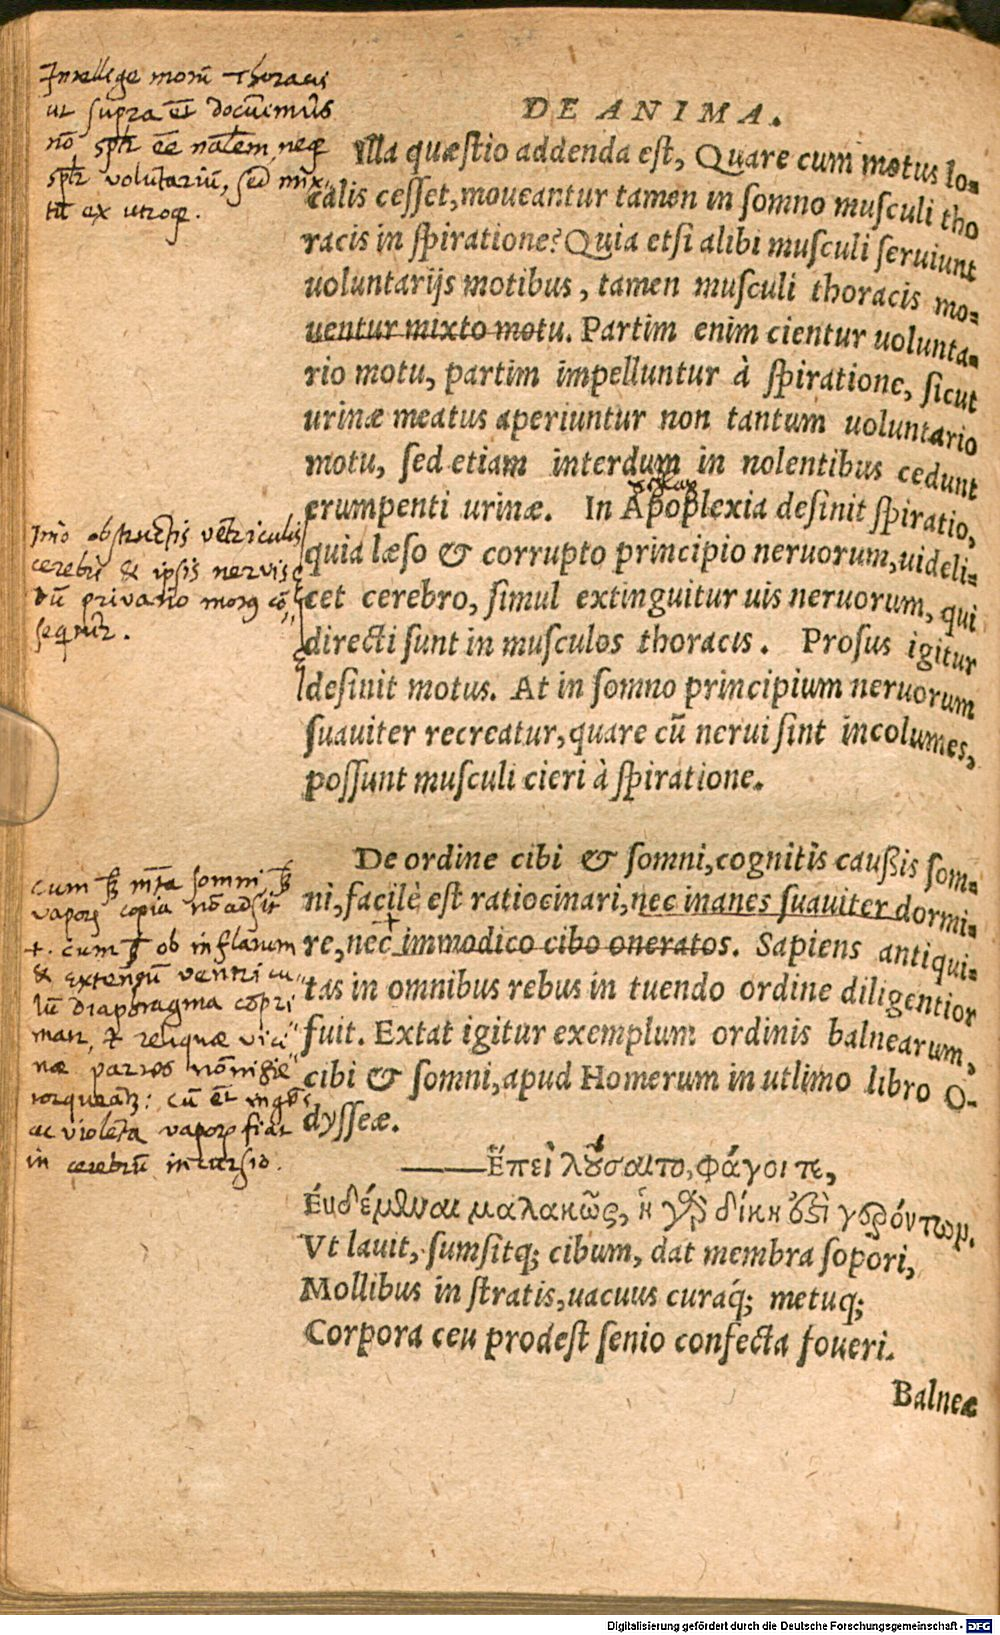 Intellige motū Thoracis
ut supra et docuimus
nō splr eē nālem, neq
splr volūtariū, sed mix-
tū ex utroq.
DE ANIMA.
Illa quæstio addenda est, Quare cum motus lo-
calis cesset, moueantur tamen in somno musculi tho
racis in spiratione? Quia etsi alibi musculi seruiunt
uoluntarijs motibus, tamen musculi thoracis mo-
uentur mixto motu. Partim enim cientur uolunta-
rio motu, partim impelluntur à spiratione, sicut
urinæ meatus aperiuntur non tantum uoluntario
motu, sed etiam interdum in nolentibus cedunt
erumpenti urinæ. In Apoplexia desinit spiratio,
quia læso & corrupto principio neruorum, uideli-
cet cerebro, simul extinguitur uis neruorum, qui
directi sunt in musculos thoracis. Prosus igitur
desinit motus. At in somno principium neruorum
suauiter recreatur, quare cū nerui sint incolumes,
possunt musculi cieri à spiratione.
Imo obstructis vētriculis
cerebri & ipsis nervis
dū privatio motus cō
sequitur.
De ordine cibi & somni, cognitis caußis som-
ni, facile est ratiocinari, nec inanes suauiter dormi-
re, nec immodico cibo oneratos. Sapiens antiqui-
tas in omnibus rebus in tuendo ordine diligentior
fuit. Extat igitur exemplum ordinis balnearum,
cibi & somni, apud Homerum in utlimo libro O-
dysseæ.
cum materia somni
vaporū copia nō adsit
+. cum ob inflatum
& extensū ventricu
lū diaphragma compri
matr, & reliquæ vici
næ partes
torqueātr: cū et
ac violēta vaporū fiat
in cerebrū incursio.
——Ἐπεὶ λούσαιτο, φάγοι τε,
Εὑδέμεναι μαλακῶς, ἡ γὰρ δίκη ὀξὶ γερόντων.
Vt lauit, sumsitq; cibum, dat membra sopori,
Mollibus in stratis, uacuus curaq́; metuq;
Corpora ceu prodest senio confecta foueri.
Balneæ
Digitalisierung gefördert durch die Deutsche Forschungsgemeinschaft - DFG